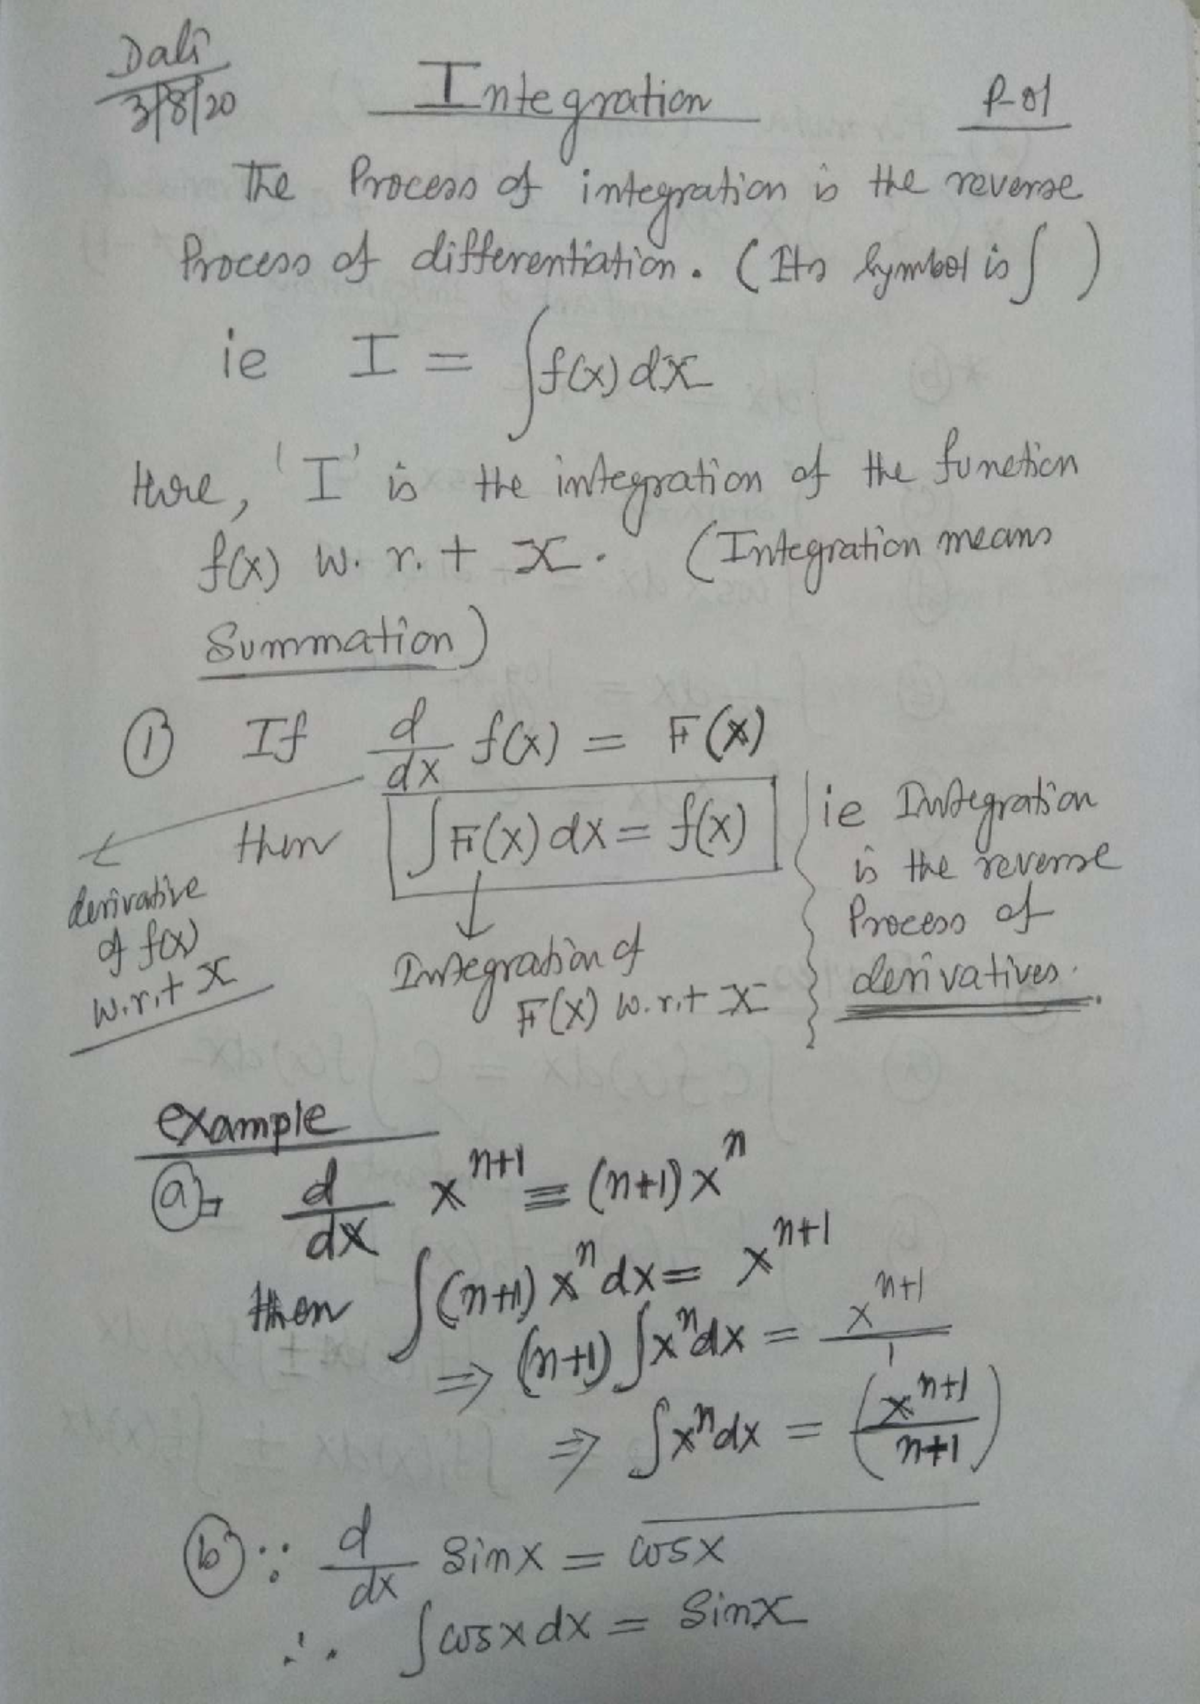 Date
3/8/20
Integration
P-01
The Process of integration is the reverse
Process of differentiation. (Its Symbol is ∫ )
ie I = ∫f(x) dx
Here, 'I' is the integration of the function
f(x) w.r.t x. (Integration means
Summation)
① If d/dx f(x) = F(x)
then ∫F(x) dx = f(x)
derivative
of f(x)
w.r.t x
Integration of
F(x) w.r.t x
ie Integration
is the reverse
Process of
derivatives.
example
ⓐ d/dx x^(n+1) = (n+1) x^n
then ∫(n+1) x^n dx = x^(n+1)
⇒ (n+1) ∫x^n dx = x^(n+1)/1
⇒ ∫x^n dx = (x^(n+1)/(n+1))
ⓑ ∵ d/dx Sinx = cosx
∴ ∫cosx dx = Sinx